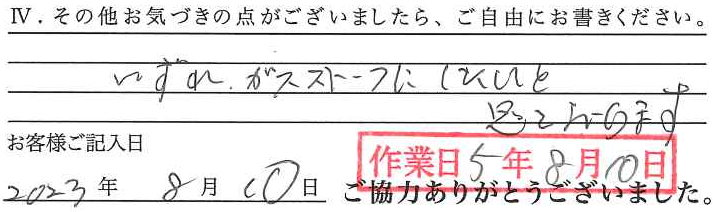 Ⅳ．その他お気づきの点がございましたら、ご自由にお書きください。
いずれ、ガスストーブにしたいと
思っております
お客様ご記入日
作業日5年8月10日
2023年 8月10日
ご協力ありがとうございました。